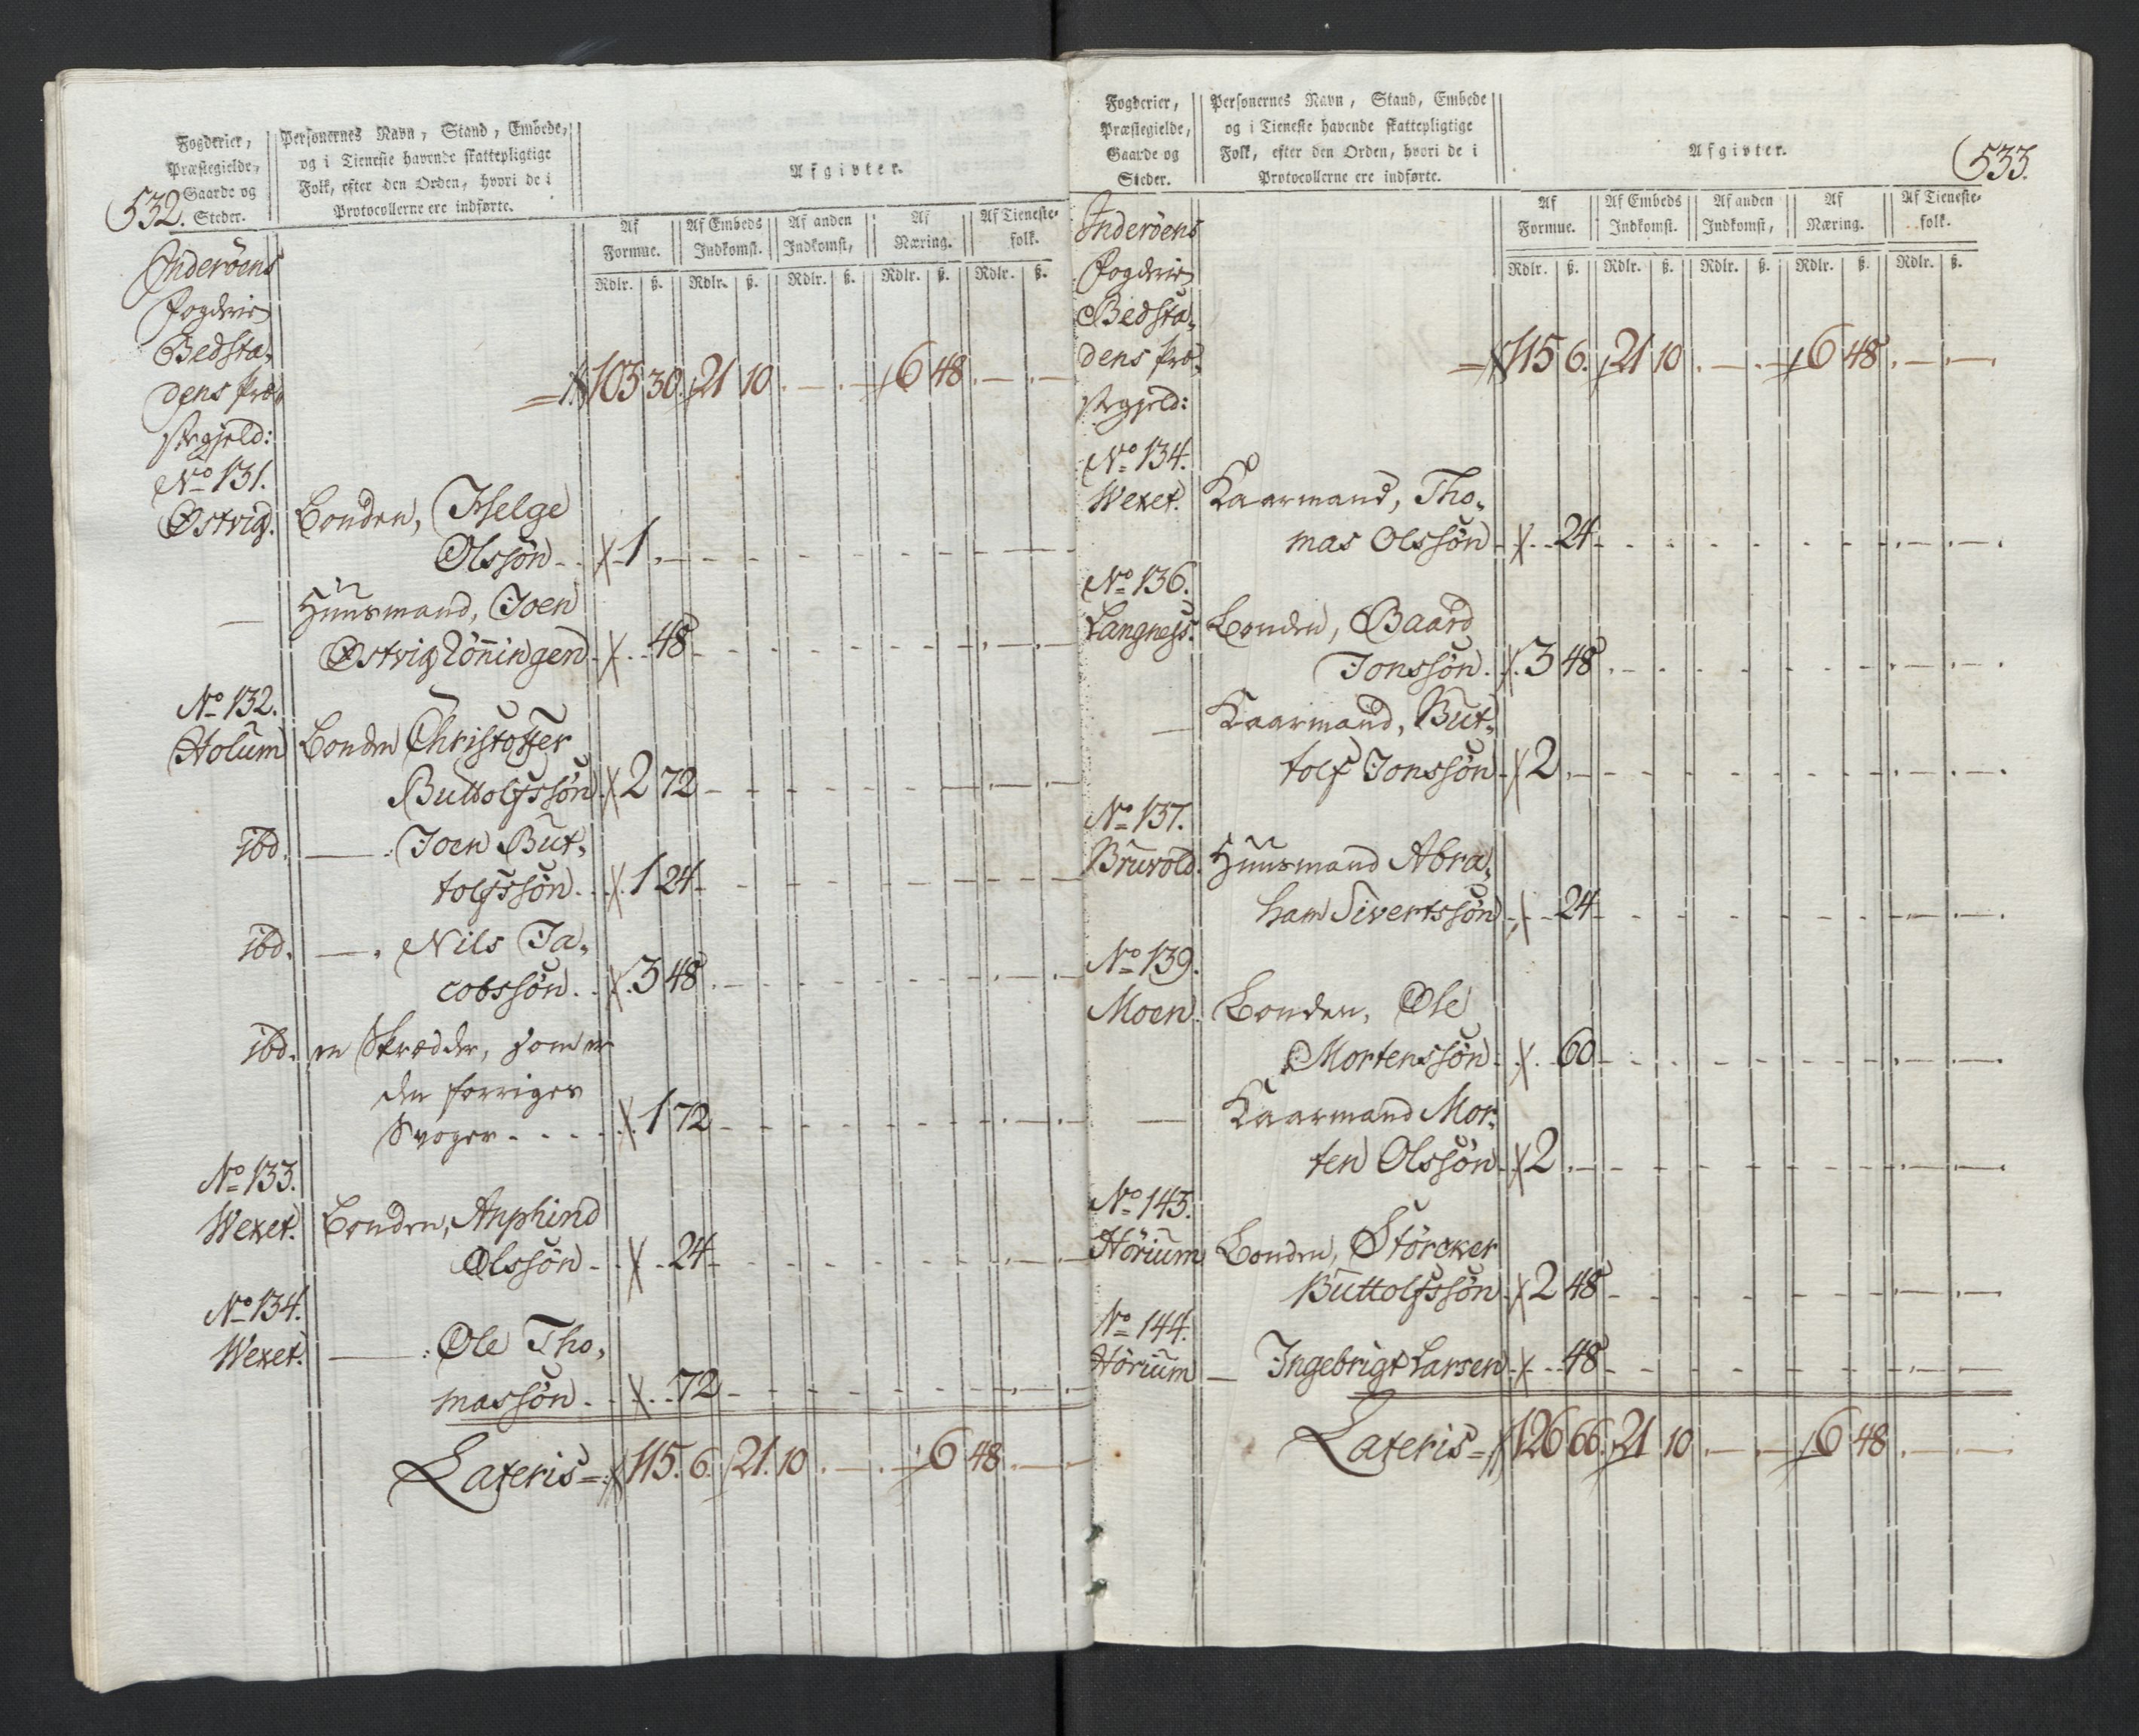 Fogderier,
Præstegielde,
Gaarde og
Steder.
Personernes Navn, Stand, Embede,
og i Tieneste havende skattepligtige
Folk, efter den Orden, hvori de i
Protocollerne ere indførte.
Afgivter.
532.
Af Formue. Af Embeds Indkomst. Af anden Indkomst, Af Næring. Af Tieneste-folk.
Rdlr. ß. Rdlr. ß. Rdlr. ß. Rdlr. ß. Rdlr. ß.
Inderöens
Fogderie
Bedsta-
dens Præ-
stegjeld:
= 103 30. 21 10. — . — 6 48. — . —
No 131.
Østvig. Bonden, Helge
Olssön - - 1. —
— Huusmand, Joen
Østvigrönningen - 48 -
No 132.
Holum Bonden Christoffer
Buttolfssön 2 72 -
ibd. — : Joen But-
tolfssön. . 1 24 -
ibd. — . Nils Ja-
cobssön. . 3 48. -
ibd. en Skrædder, som er
den forriges
Svoger - - - - 1 72 -
No 133.
Wexet. Bonden, Anphind
Olssön - - 24 -
No 134.
Wexet. — : Ole Tho-
massön. . . 72 -
Lateris = 115. 6. 21. 10. — . — 6 48. — . —
Fogderier,
Præstegielde,
Gaarde og
Steder.
Personernes Navn, Stand, Embede
og i Tieneste havende skattepligtige
Folk, efter den Orden, hvori de i
Protocollerne ere indførte.
Afgivter.
533.
Af Formue. Af Embeds Indkomst. Af anden Indkomst, Af Næring. Af Tieneste-folk.
Rdlr. ß. Rdlr. ß. Rdlr. ß. Rdlr. ß. Rdlr. ß.
Inderöens
Fogderie
Bedsta-
dens Præ-
stegjeld:
= 115 6. 21 10. — . — 6 48. — . —
No 134.
Wexet. Kaarmand, Tho-
mas Olssön - . . 24 -
No 136.
Langness. Bonden, Baard
Jonssön. . 3 48. -
— Kaarmand, But-
tolf Jonssön - 2. —
No 137.
Bruvold. Huusmand Abra-
ham Sivertssön - - 24 -
No 139.
Moen. Bonden, Ole
Mortenssön - . 60 -
— Kaarmand Mor-
ten Olssön - 2. —
No 143.
Hörium Bonden, Störcker
Buttolfssön - 2 48 -
No 144.
Hörium — Ingebrigt Larsen - . . 48 -
Lateris = 126 66. 21 10. — . — 6 48. — . —